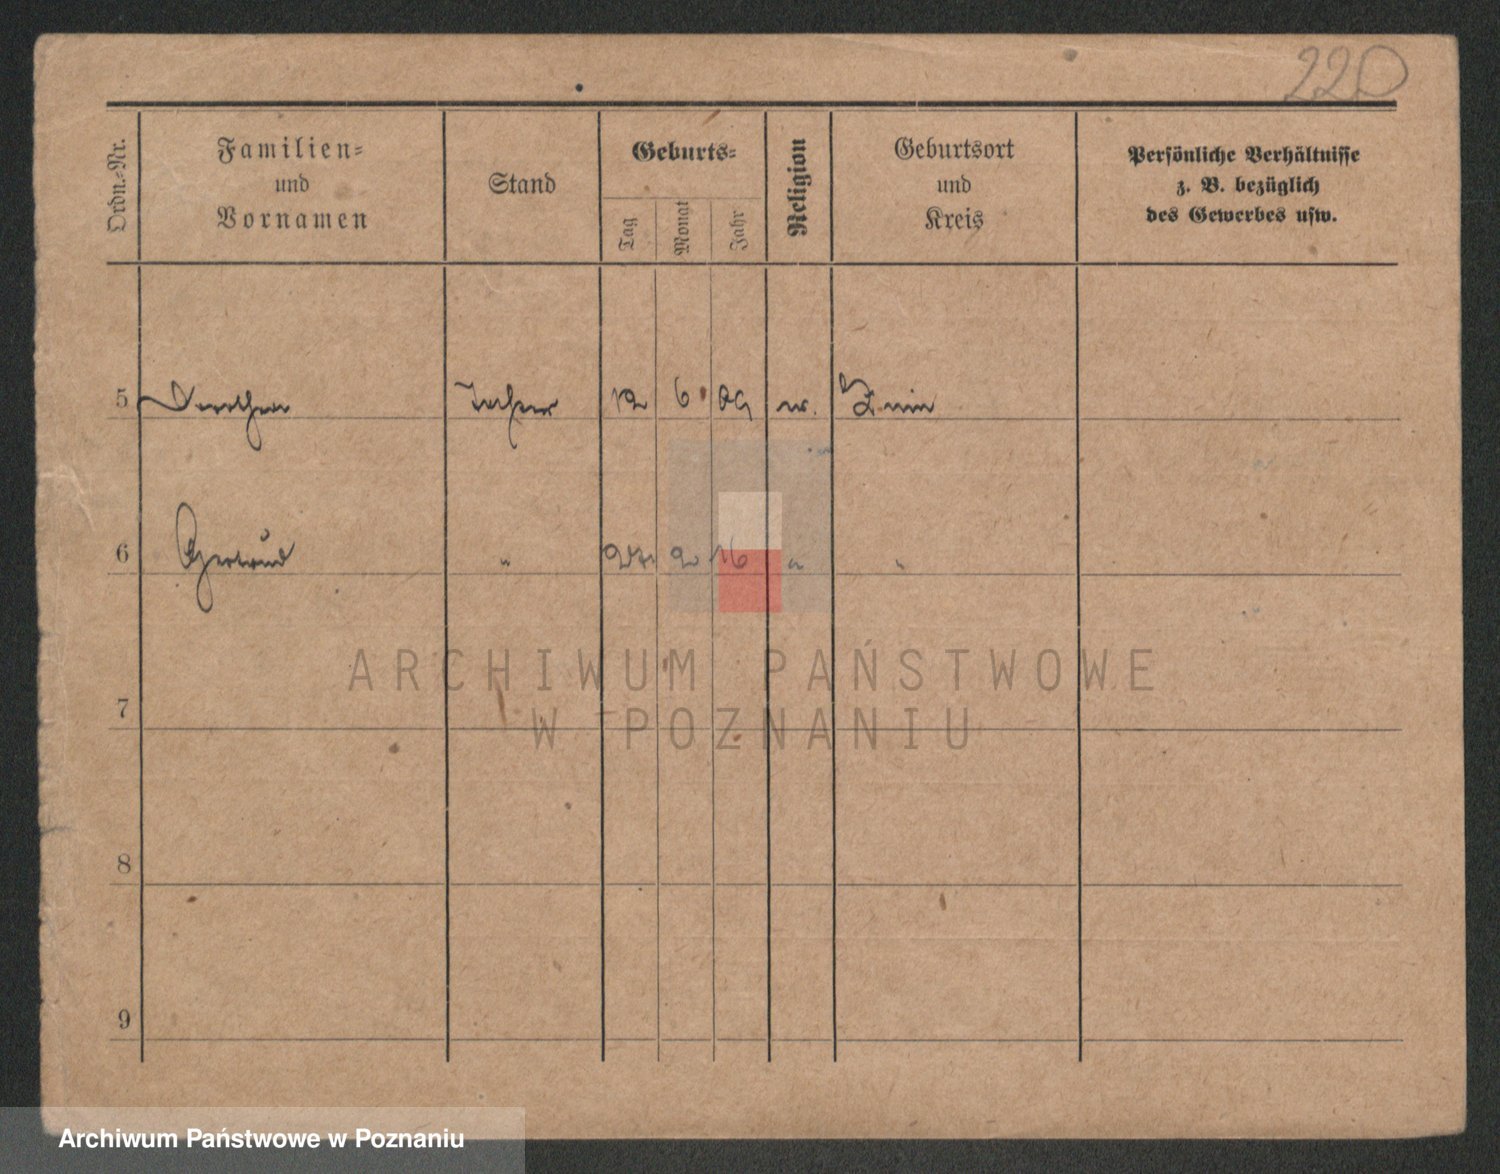 220
Ordn.-Nr.
Familien-
und
Vornamen
Stand
Geburts-
Tag
Monat
Jahr
Religion
Geburtsort
und
Kreis
Persönliche Verhältnisse
z. B. bezüglich
des Gewerbes usw.
5 Dorothea Tochter 12 6 09 ev. Znin
6 Gertrud " 27 2 16 " "
7
8
9
ARCHIWUM PAŃSTWOWE
W POZNANIU
Archiwum Państwowe w Poznaniu